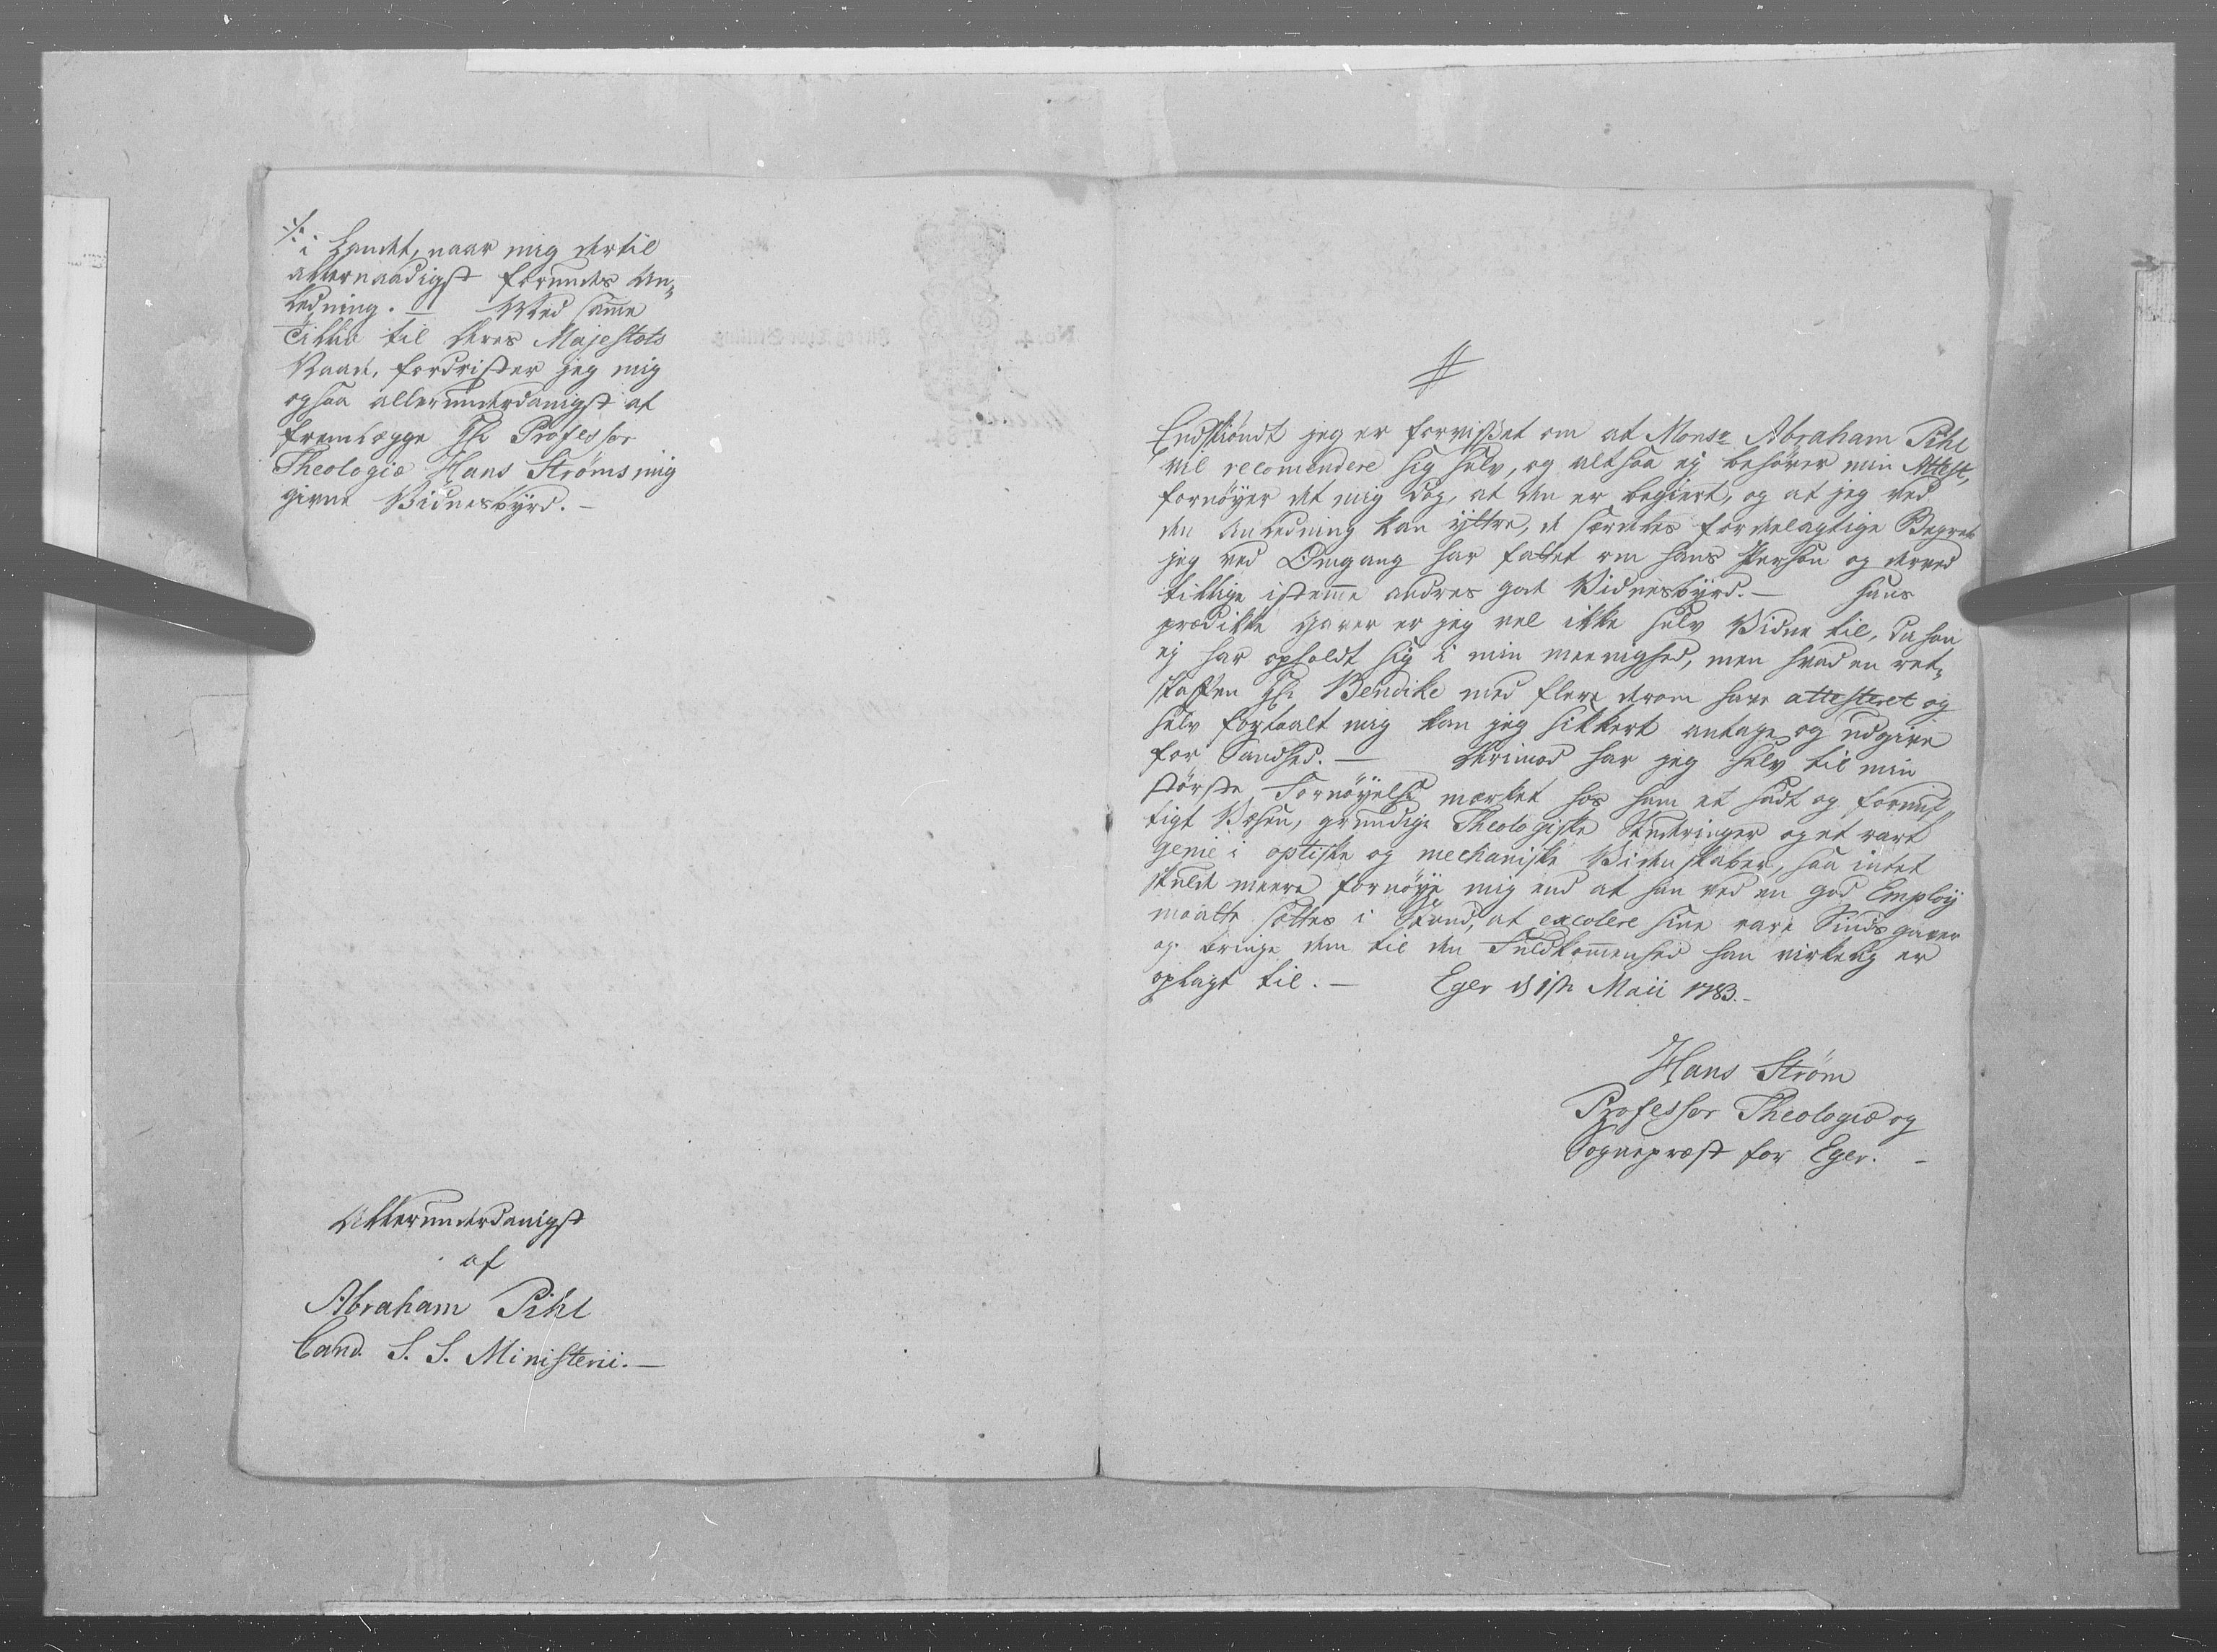 ·/. i Landet, naar mig dertil
allernaadigst forundes An„
ledning. — Med samme
Tillid til Deres Majestæts
Naade, fordrister jeg mig
ogsaa allerunderdanigst at
fremlægge Hr Professor
Theologiæ Hans Strøms mig
givne Vidnesbyrd. —
Allerunderdanigst
af
Abraham Pihl
Cand. S. S. Ministerii. —
Endskiöndt jeg er forvisset om at Monsr Abraham Pihl
vil recomendere sig selv, og altsaa ej behöver min Attest,
fornöyer det mig dog, at den er begiert, og at jeg ved
den Anledning kan yttre, de særdeles fordelagtige Begreb
jeg ved Omgang har fattet om hans Person og derved
tillige istemme andres gode Vidnesbyrd. — Hans
prædike Gaver er jeg vel ikke selv Vidne til, da han
ej har opholdt sig i min Meenighed, men hvad en ret„
skaffen Hr Bendike med flere derom have attesteret og
selv fortaalt mig kan jeg sikkert antage og udgive
for Sandhed. — Derimod har jeg selv til min
störste Fornöyelse mærket hos ham et sadt og fornuf„
tigt Væsen, grundige Theologiske Studeringer og et rart
Genie i optiske og mechaniske Videnskaber, saa intet
skulde meere fornöye mig end at han ved en god Employ
maatte sættes i Stand, at excolere sine rare Sinds Gaver
og bringe dem til den Fuldkommenhed han virkelig er
oplagt til. — Eger d 1ste Maii 1783. –
Hans Strøm
Professor Theologiæ og
Sognepræst for Eger. –